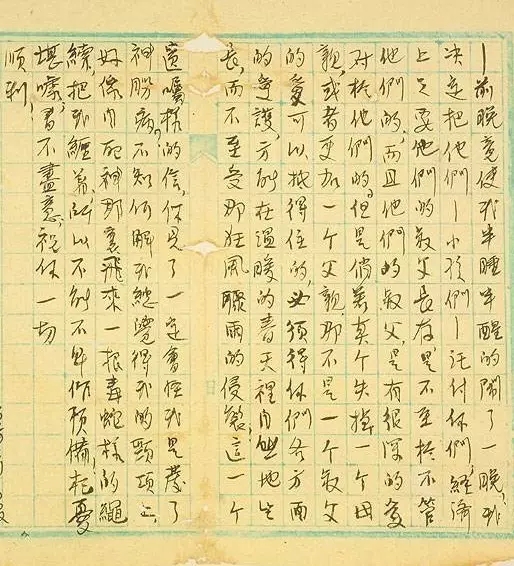 丨前晚竟使我半睡半醒的鬧了一晚，我
决定把他們丨小孩們丨託付你們，經濟
上只要他們的叔父長存，是不至於不管
他們的，而且他們的叔父，是有很深的愛
对於他們的。但是倘若真个失掉一个母
親，或者更加一个父親，那不是一个叔父
的愛可以抵得住的，必須得你們各方面
的愛護，方能在溫暖的春天裡自然地生
長，而不至受那狂風驟雨的侵襲。這一个
遺囑樣的信，你見了一定會怪我是發了
神經病，不知何解我總覺得我的頸項上，
好像自死神那裏飛來一根毒蛇樣的繩
索，把我纏着，所以不能不早作預備，杞憂
堪嚎，書不盡意，祝你一切
順利，